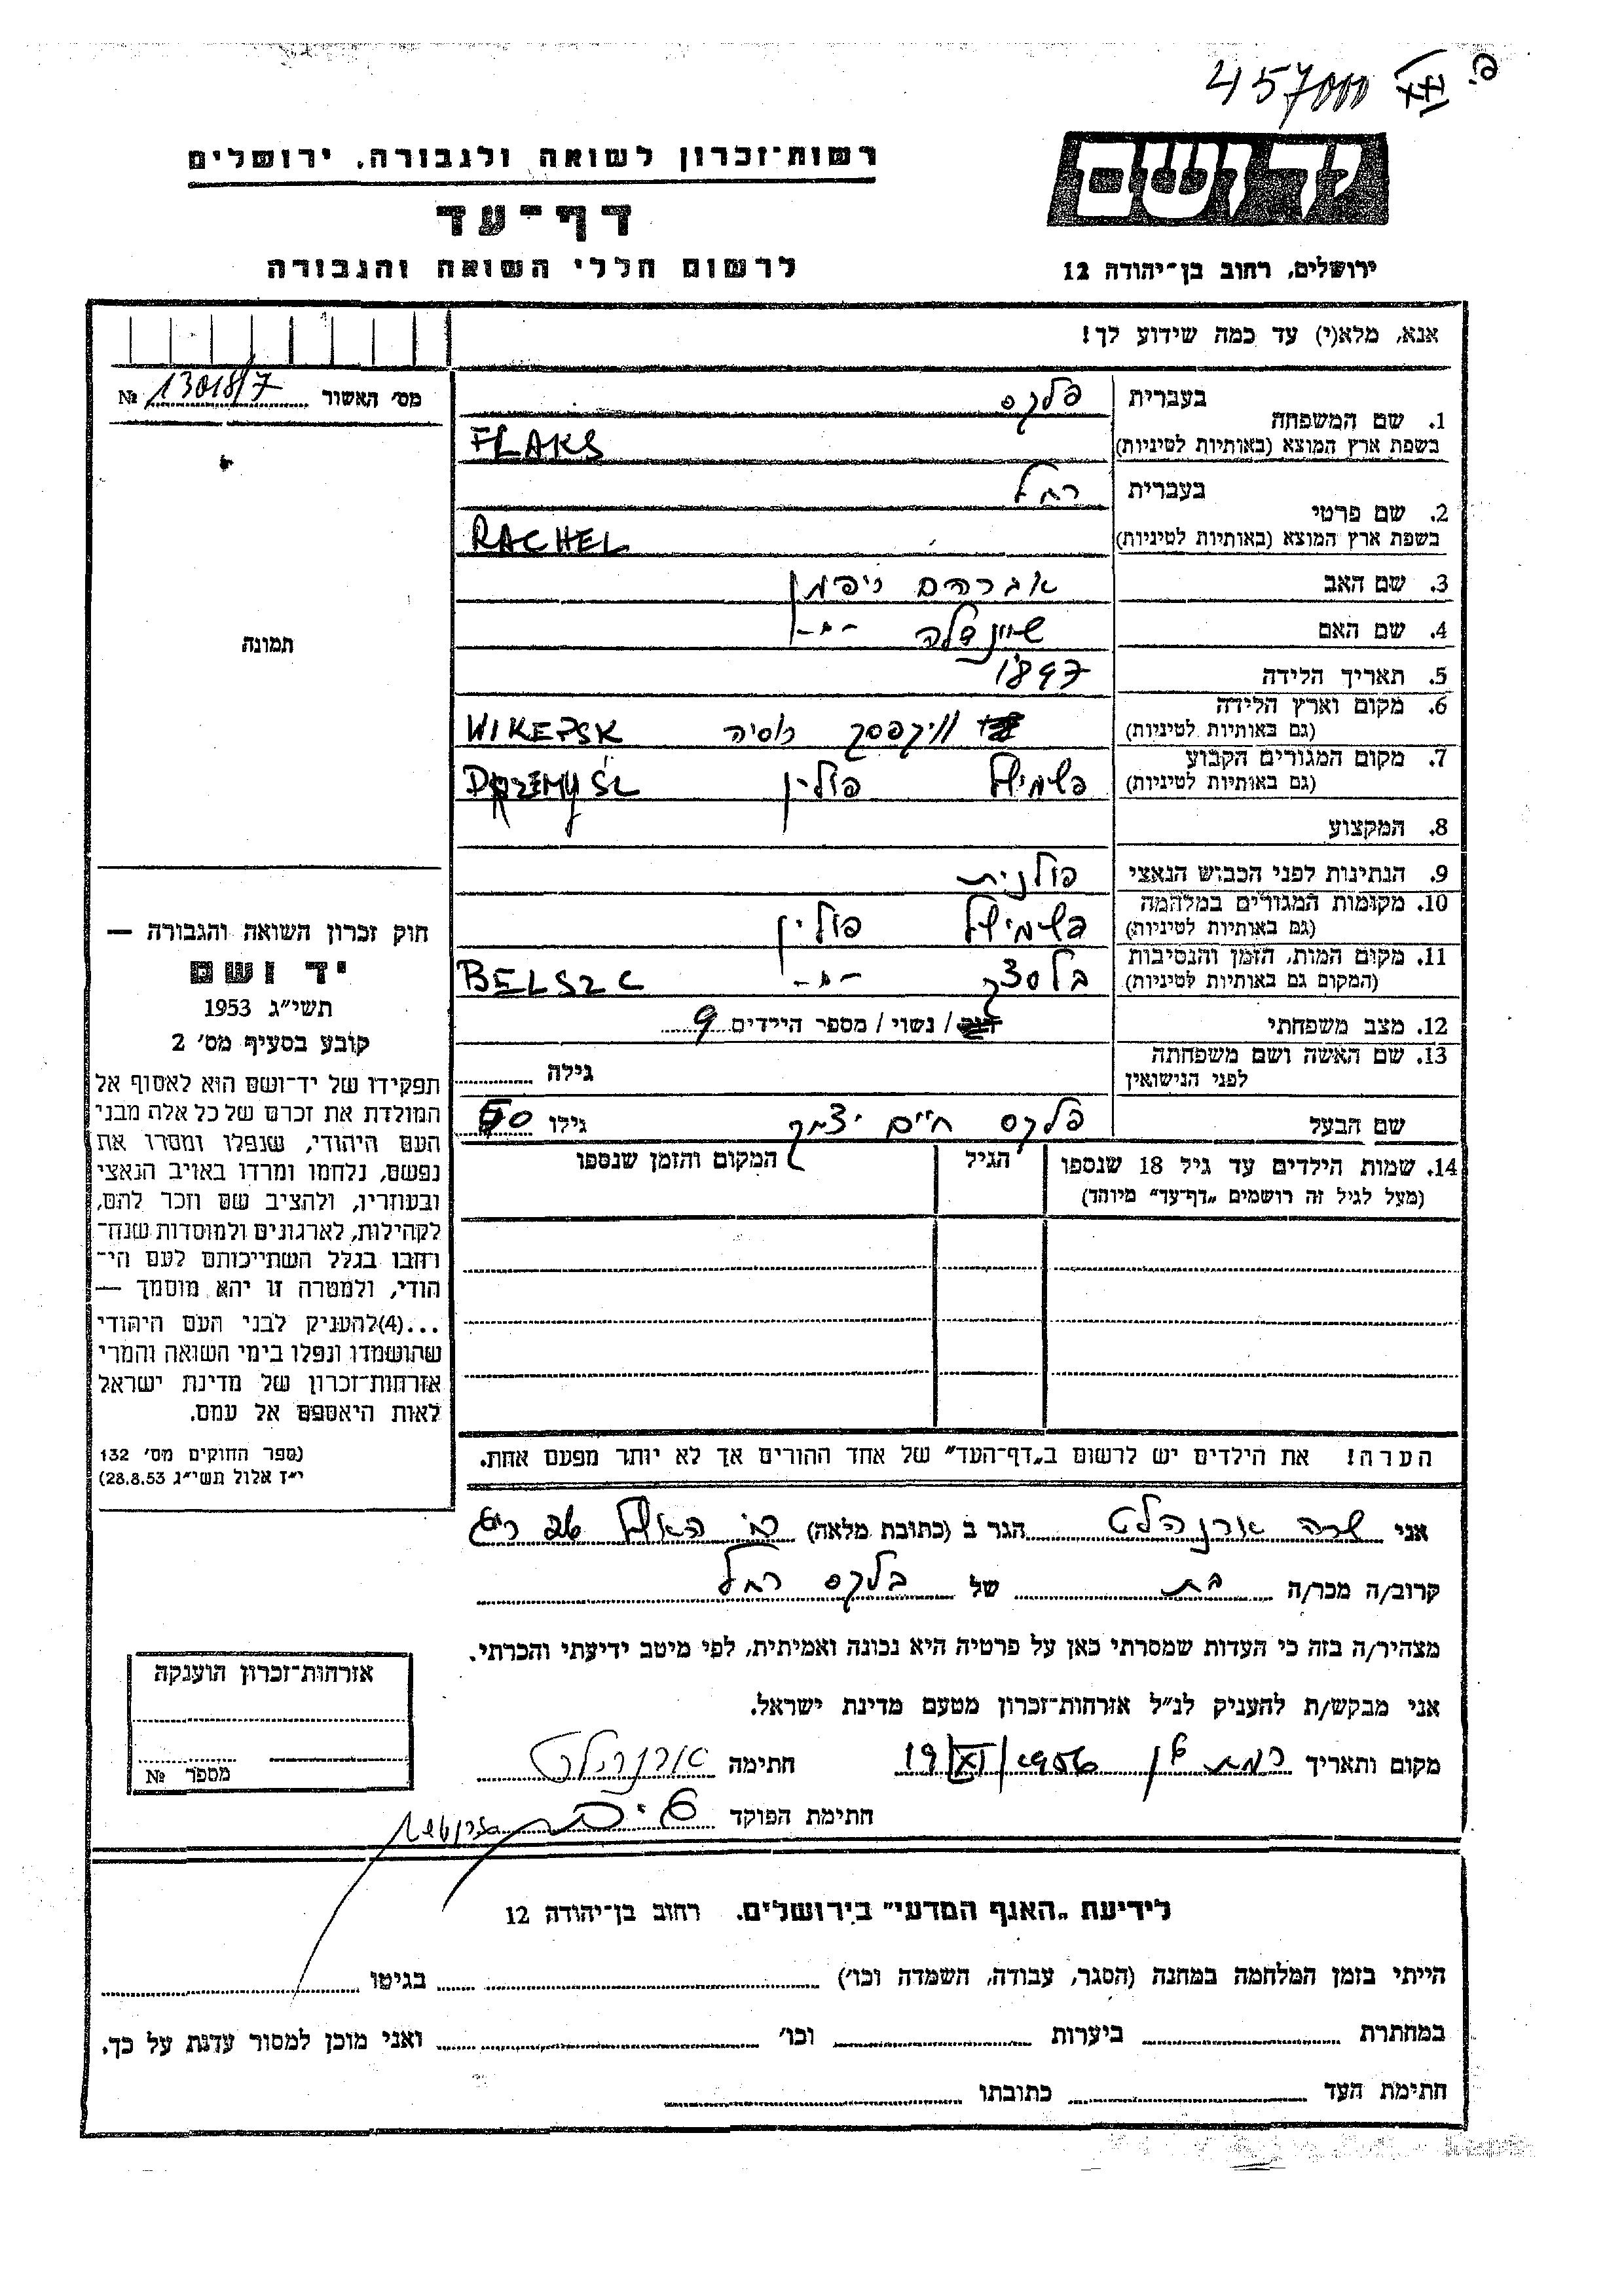 457000
רשות־זכרון לשואה ולגבורה. ירושלים
דף־עד
לרשום חללי השואה והגבורה
יד ושם
ירושלים, רחוב בן־יהודה 12
אנא, מלא(י) עד כמה שידוע לך!
מס׳ האשור 13018/7 №
תמונה
1. שם המשפחה
בעברית פלקס
בשפת ארץ המוצא (באותיות לטיניות) FLAKS
2. שם פרטי
בעברית רחל
בשפת ארץ המוצא (באותיות לטיניות) RACHEL
3. שם האב אברהם
4. שם האם שיינדלה -״-
5. תאריך הלידה 1897
6. מקום וארץ הלידה
(גם באותיות לטיניות) וויקפסק רוסיה WIKEPSK
7. מקום המגורים הקבוע
(גם באותיות לטיניות) פשמישל פולין PRZEMYŚL
8. המקצוע
9. הנתינות לפני הכבוש הנאצי פולנית
10. מקומות המגורים במלחמה
(גם באותיות לטיניות) פשמישל פולין
11. מקום המות, הזמן והנסיבות
(המקום גם באותיות לטיניות) בלסצק -״- BELSZC
12. מצב משפחתי רוק / נשוי / מספר הילדים 9
13. שם האשה ושם משפחתה
לפני הנישואין גילה
שם הבעל פלקס חיים יצחק גילו 50
14. שמות הילדים עד גיל 18 שנספו הגיל המקום והזמן שנספו
(מעל לגיל זה רושמים „דף־עד״ מיוחד)
הערה! את הילדים יש לרשום ב„דף־העד״ של אחד ההורים אך לא יותר מפעם אחת.
חוק זכרון השואה והגבורה —
יד ושם
תשי״ג 1953
קובע בסעיף מס׳ 2
תפקידו של יד־ושם הוא לאסוף אל
המולדת את זכרם של כל אלה מבני
העם היהודי, שנפלו ומסרו את
נפשם, נלחמו ומרדו באויב הנאצי
ובעוזריו, ולהציב שם וזכר להם,
לקהילות, לארגונים ולמוסדות שנח־
רחבו בגלל השתייכותם לעם הי־
הודי, ולמטרה זו יהא מוסמך —
...(4)להעניק לבני העם היהודי
שהושמדו ונפלו בימי השואה והמרי
אזרחות־זכרון של מדינת ישראל
לאות היאספם אל עמם.
(ספר החוקים מס׳ 132
י״ז אלול תשי״ג 28.8.53)
אני שרה ארנהלט הגר ב (כתובת מלאה)
קרוב/ה מכר/ה בת של בלקס רחל
מצהיר/ה בזה כי העדות שמסרתי כאן על פרטיה היא נכונה ואמיתית, לפי מיטב ידיעתי והכרתי.
אני מבקש/ת להעניק לנ״ל אזרחות־זכרון מטעם מדינת ישראל.
מקום ותאריך רמת גן 19/XI/1956 חתימה ארנהלט
חתימת הפוקד
אזרחות־זכרון הוענקה
מספר №
לידיעת „האגף המדעי״ בירושלים. רחוב בן־יהודה 12
הייתי בזמן המלחמה במחנה (הסגר, עבודה, השמדה וכו׳) בגיטו
במחתרת ביערות וכו׳ ואני מוכן למסור עדות על כך.
חתימת העד כתובתו